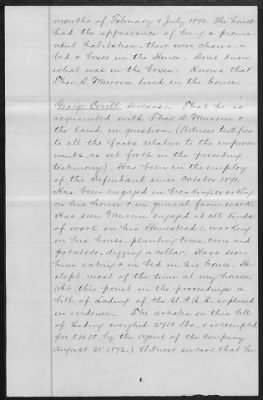 months of February & July 1872. The house
had the appearance of being a perma-
nent habitation. there were chairs, a
bed & boxes in the House. Dont know
what was in the boxes. Knows that
Thos D. Murrin lived in the house.
George Covill Swears: That he is
acquainted with Thos. D. Murrin &
the land in question. (Witness testifies
to all the facts relative to the improve-
ments, as set forth in the preceding
testimony) Has been in the employ
of the Defendant since October 1871.
Has been engaged in breaking, working
on his house & in general farm work.
Has seen Murrin engaged at all kinds
of work on his Homestead:- working
on his house, planting trees, corn and
potatoes, digging a cellar. Have seen
him eating & in bed in his house. He
slept most of the time at my house.
(At this point in the proceedings a
bill of Lading of the U.P.R.R. is placed
in evidence. The articles on this bill
of Lading weighed lbs, & receipted
for by the agent of the Company
August 21st 1872.) Witness swears that he